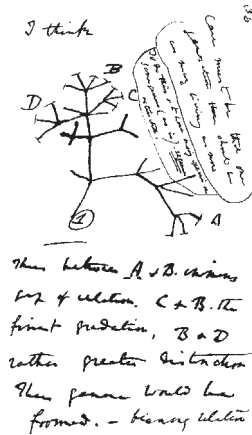 I think
36
Case must be that one
generation then should be
as many living as now
To do this & to have many species in
same genus (as is) requires
extinction
B
D
C
A
1
Thus between A & B. immense
gap of relation. C & B. the
finest gradation, B & D
rather greater distinction
Thus genera would be
formed. — bearing relation